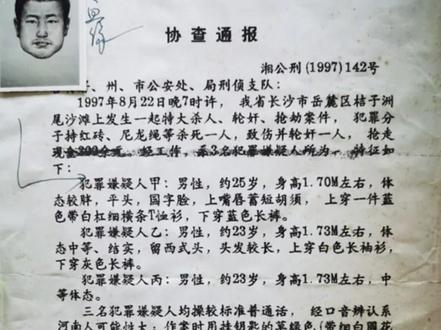 协查通报
湘公刑(1997)142号
、州、市公安处、局刑侦支队:
1997年8月22日晚7时许,我省长沙市岳麓区桔子洲
尾沙滩上发生一起特大杀人、轮奸、抢劫案件,犯罪分
子持红砖、尼龙绳等杀死一人,致伤并轮奸一人,抢走
现金300余元。经工作,系3名犯罪嫌疑人所为,特征如
下:
犯罪嫌疑人甲:男性,约25岁,身高1.70M左右,体
态较胖,平头,国字脸,上嘴唇蓄短胡须,上穿一件蓝
色带白杠细横条T恤衫,下穿蓝色长裤。
犯罪嫌疑人乙:男性,约23岁,身高1.73M左右,体
态中等、结实,留西式头,头发较长,上穿白色长袖衫,
下穿灰色长裤。
犯罪嫌疑人丙:男性,约23岁,身高1.73M左右,中
等体态。
三名犯罪嫌疑人均操较标准普通话,经口音辨认系
河南人可能性大,作案时用挂钥匙的草绿色(带细白圆花